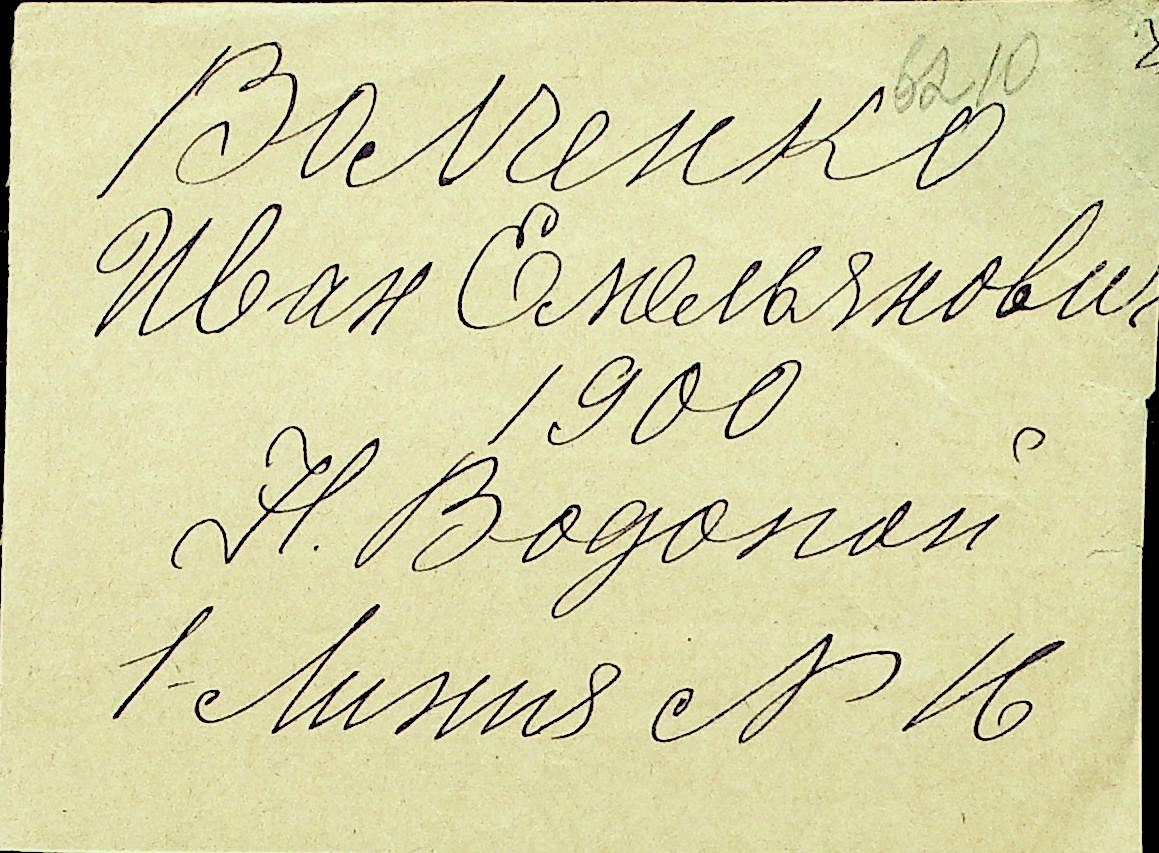 6210
Волченко
Иван Емельянович
1900
Н. Водопой
1-Линия № 16